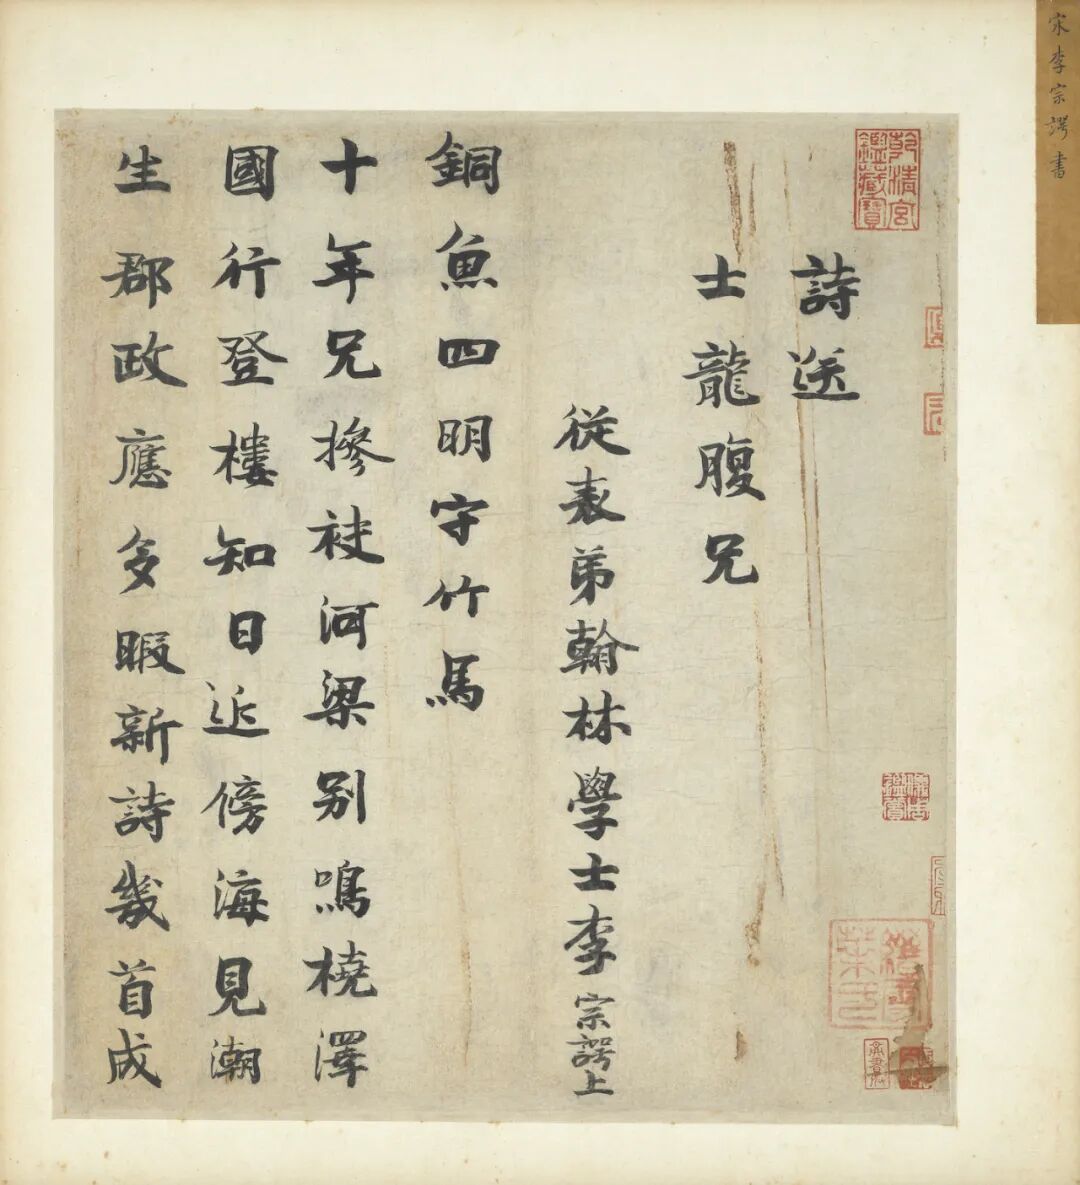 宋李宗諤書
乾清宮鑑藏寶
詩送
士龍腹兄
從表弟翰林學士李宗諤上
銅魚四明守竹馬
十年兄摻袂河梁別鳴橈澤
國行登樓知日近傍海見潮
生郡政應多暇新詩幾首成